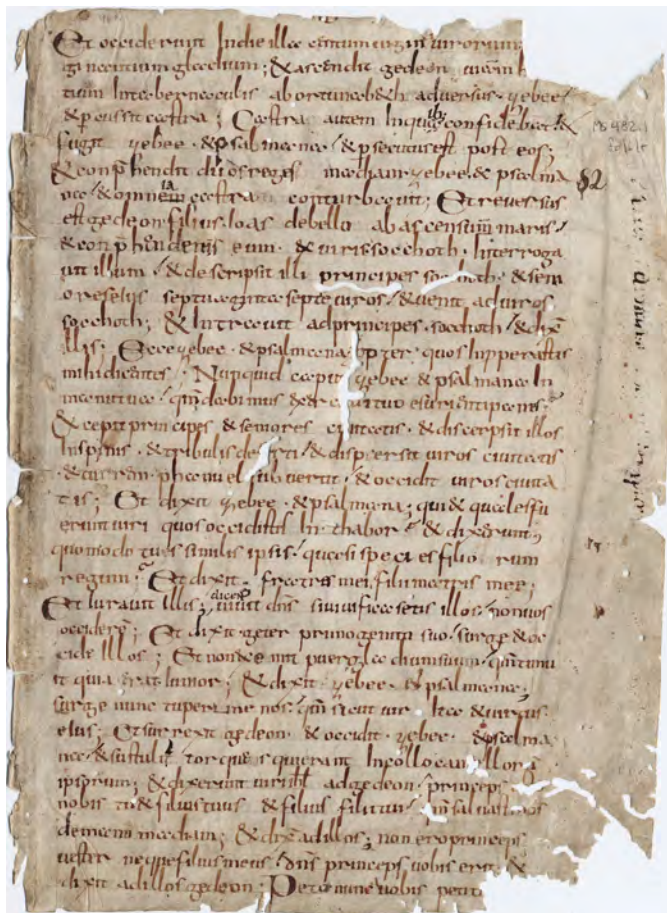 Et occiderunt In die illa centum uiginti uirorum
gincentium gladium; & ascendit gedeon uiam h
tium In tabernaculis ab ortu nabeth aduersus zebee
& percussit castra; Castra autem In quibus confidebat &
fugit zebee & psalmana & persecutus est post eos;
& conprehendit duos reges madiam zebee & psalma
na & omnem castra conturbauit; Et reuersus
est gedeon filius Ioas de bello ab ascensum maris
& conprehendens eum & uiris socchoth Interroga
uit illum & descripsit illi principes socchoth & sen
ores eius septuaginta septe uiros & uenit ad uiros
socchoth; & Intrauit ad principes socchoth & dix̄
illis; Ecce zebee & psalmana propter quos Inproperastis
mihi dicentes Nunquid caput zebee & psalmana In
manu tua qm̄ dabimus exercitui tuo esurienti panis
& cepit principes & seniores ciuitatis & discerpsit illos
In spinis & tribulis deserti & dispersit uiros ciuitatis
& turran phanuel subuertit & occidit uiros ciuita
tis; Et dixit zebee & psalmana; qui & quales fu
erunt uiri quos occidistis In thabor & dixerunt;
quomodo tu es similis ipsis quasi species filio rum
regum Et dixit fratres mei, filii matris mee;
Et Iurauit Illis; dicens uiuit dn̄s si uiuificasetis illos non uos
occiderē; Et dixit geter primogenito suo surge & oc
cide Illos; Et non exemit puer gladium suum qm̄ timu
it quia erat Iunior; & dixit zebee & psalmana;
surge nunc tu per me nos qm̄ sicut uir Ita & uirtus
eius; Et surrexit gedeon & occidit zebee & psalma
na & sustulit torques qui erant In collo camellorum
ipsorum; & dixerunt uiri isrl̄ ad gedeon princeps
nobis tu & filius tuus & filius filii tui qm̄ saluasti nos
de manu madiam; & dix̄ ad illos; non ero princeps
uester neque filius meus dn̄s princeps uobis erit &
dixit ad illos gedeon; Peto nunc uobis peti
MS 482
82